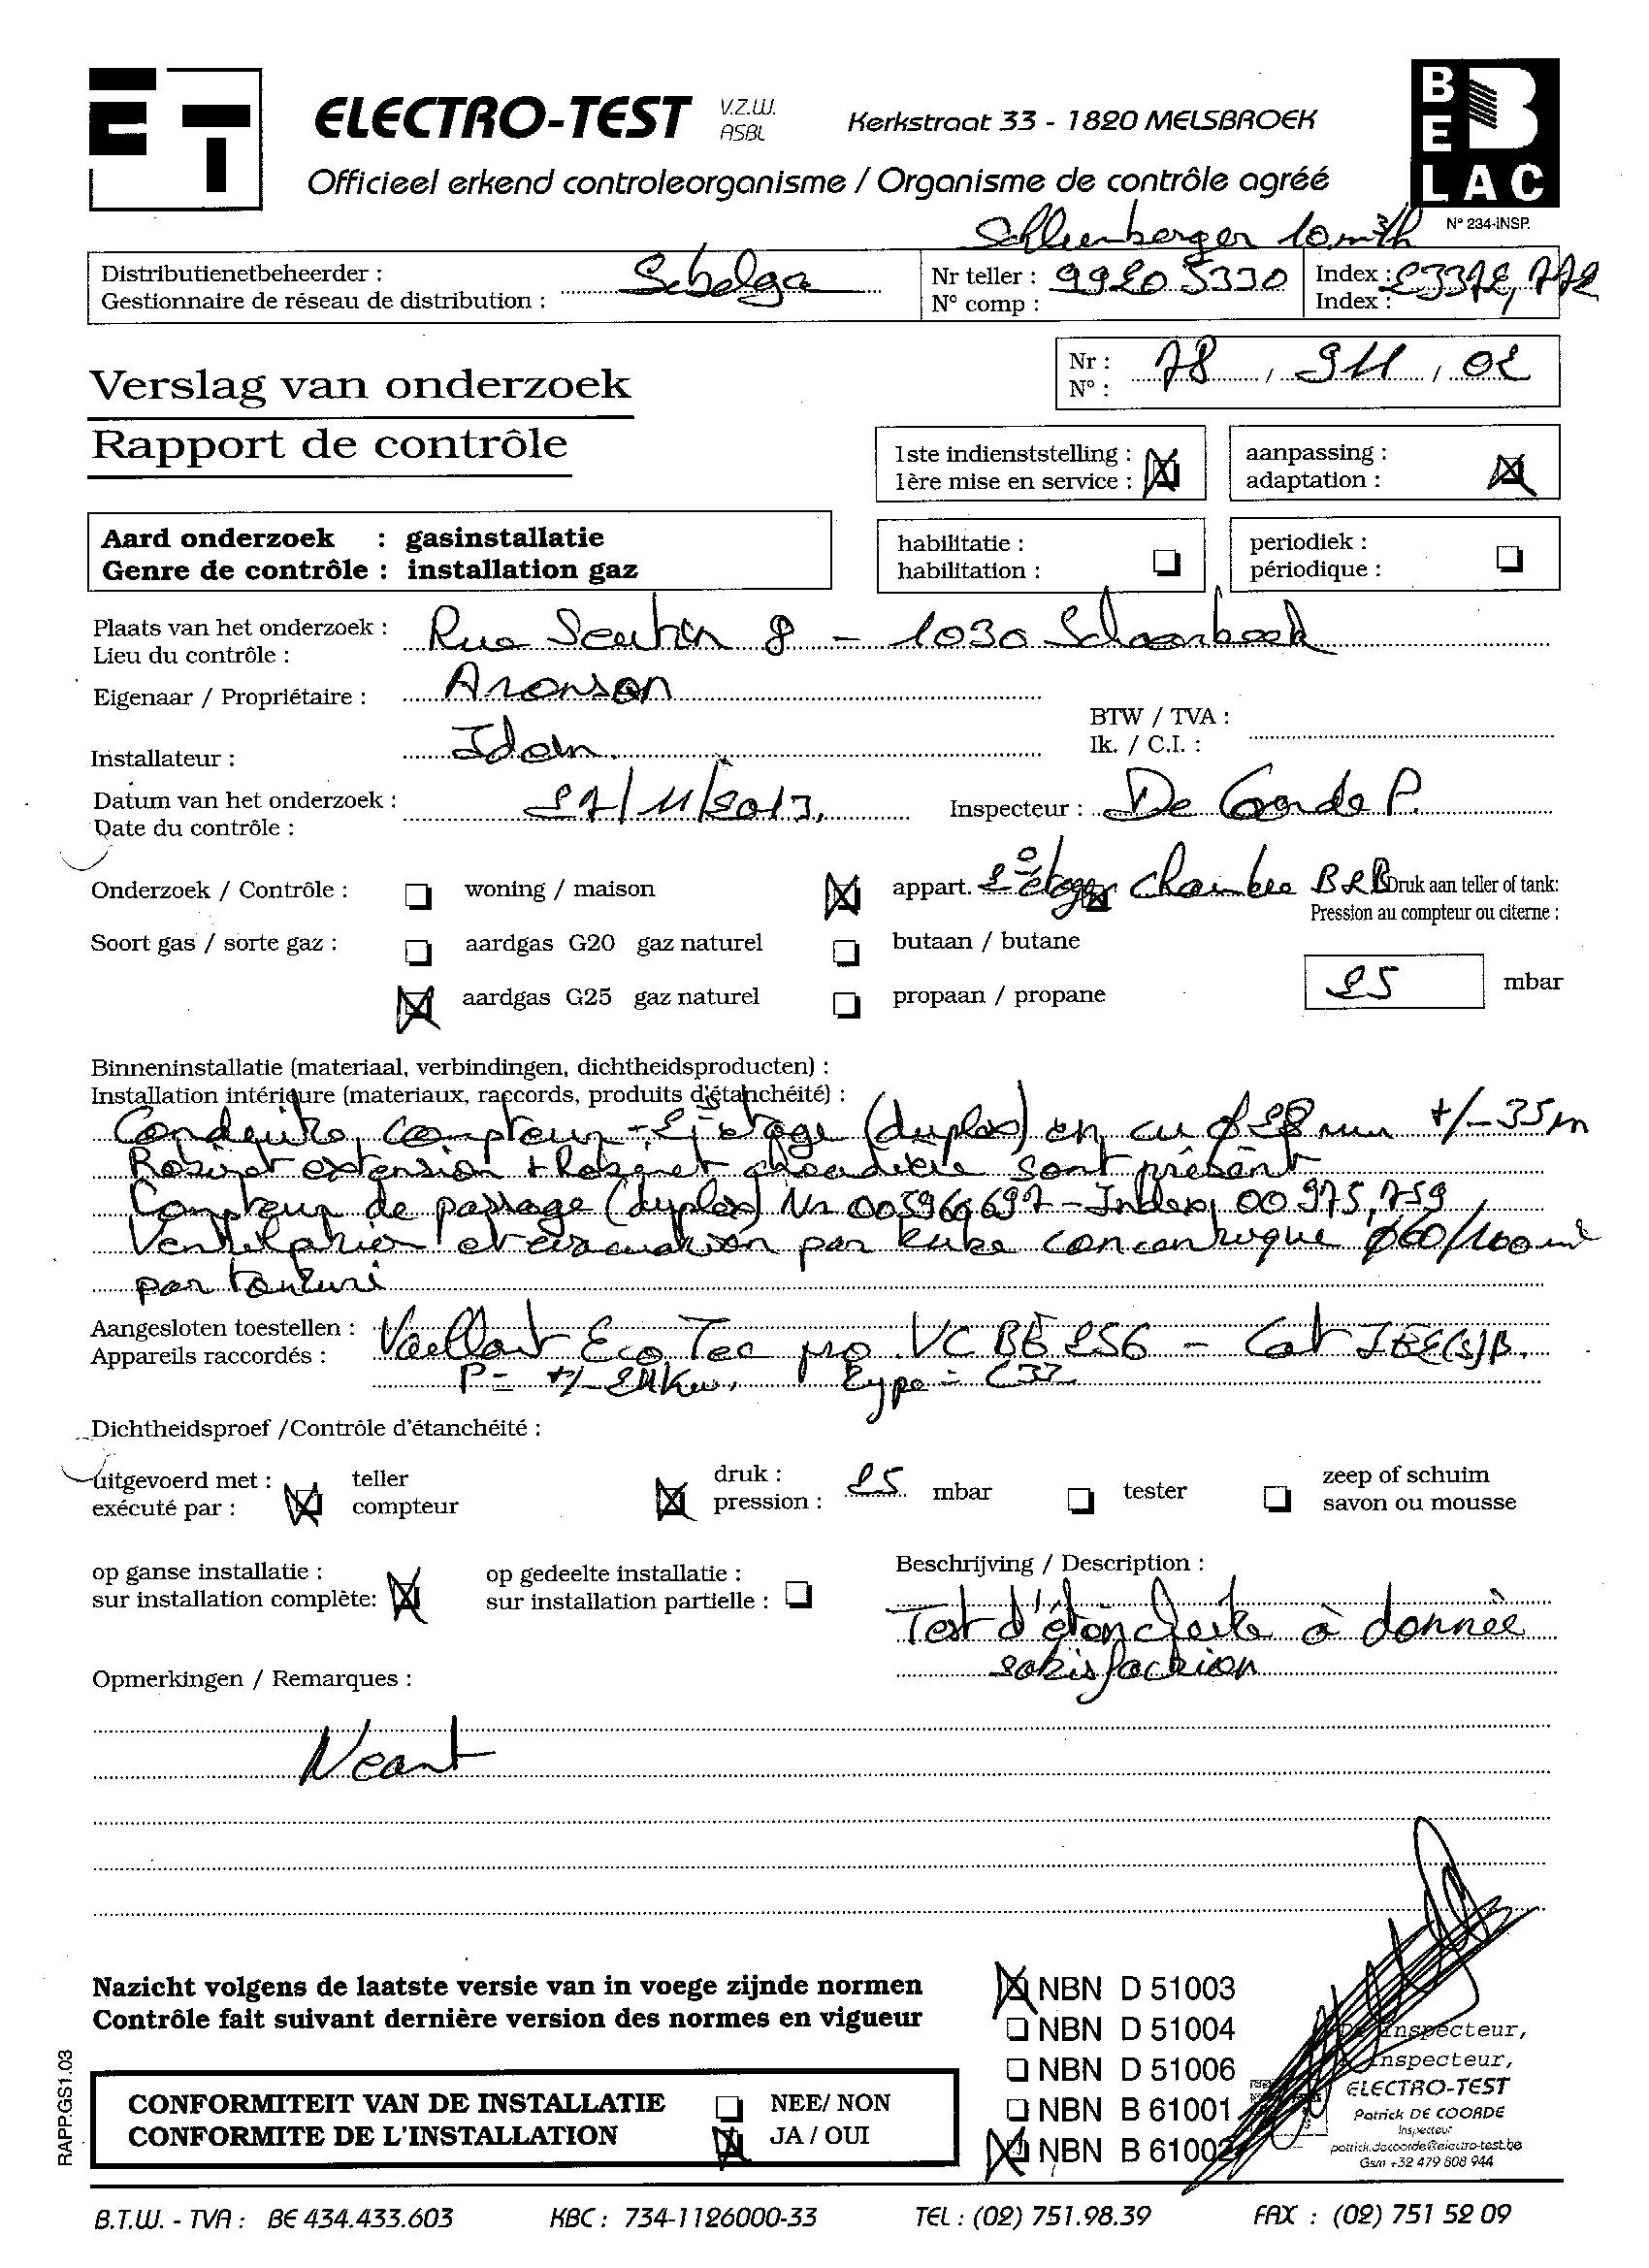 ELECTRO-TEST V.Z.W. ASBL Kerkstraat 33 - 1820 MELSBROEK
Officieel erkend controleorganisme / Organisme de contrôle agréé
BELAC
N° 234-INSP.
10 m³/h
Distributienetbeheerder :
Gestionnaire de réseau de distribution : Sibelga
Nr teller : 99205330
N° comp :
Index :
Index :
Verslag van onderzoek
Rapport de contrôle
Nr :
N° : 78 / 911 / 02
1ste indienststelling :
1ère mise en service :
aanpassing :
adaptation :
Aard onderzoek : gasinstallatie
Genre de contrôle : installation gaz
habilitatie :
habilitation :
periodiek :
périodique :
Plaats van het onderzoek : Rue Seutin 8 - 1030 Schaerbeek
Lieu du contrôle :
Eigenaar / Propriétaire : Aronson
BTW / TVA :
Ik. / C.I. :
Installateur : Idem
Datum van het onderzoek : 27/11/2013
Date du contrôle :
Inspecteur : De Coorde P.
Onderzoek / Contrôle : woning / maison appart. 2° étage chambre
Druk aan teller of tank:
Pression au compteur ou citerne :
Soort gas / sorte gaz : aardgas G20 gaz naturel butaan / butane
aardgas G25 gaz naturel propaan / propane 25 mbar
Binneninstallatie (materiaal, verbindingen, dichtheidsproducten) :
Installation intérieure (materiaux, raccords, produits d'étanchéité) :
Conduite compteur - 2° étage (duplex) en cu ø 28 mm +/- 35 m
Robinet extension + Robinet chaudière sont présent
Compteur de passage (duplex) Nr 005969697 - Index 00975,759
Ventilation et évacuation par tube concentrique ø60/100 mm
par toiture
Aangesloten toestellen : Vaillant Eco Tec pro VC BE 256 - Cat I2E(S)B.
Appareils raccordés : P= +/- 24Kw, type = C33
Dichtheidsproef /Contrôle d'étanchéité :
uitgevoerd met :
exécuté par :
teller
compteur
druk :
pression : 25 mbar
tester
zeep of schuim
savon ou mousse
op ganse installatie :
sur installation complète:
op gedeelte installatie :
sur installation partielle :
Beschrijving / Description :
Test d'étancheite à donnée
satisfaction
Opmerkingen / Remarques :
Neant
Nazicht volgens de laatste versie van in voege zijnde normen
Contrôle fait suivant dernière version des normes en vigueur
NBN D 51003
NBN D 51004
NBN D 51006
NBN B 61001
NBN B 61002
Inspecteur,
Inspecteur,
ELECTRO-TEST
Patrick DE COORDE
Inspecteur
patrick.decoorde@electro-test.be
Gsm +32 479 808 944
CONFORMITEIT VAN DE INSTALLATIE NEE/ NON
CONFORMITE DE L'INSTALLATION JA / OUI
RAPP.GS1.03
B.T.W. - TVA : BE 434.433.603 KBC : 734-1126000-33 TEL : (02) 751.98.39 FAX : (02) 751 52 09